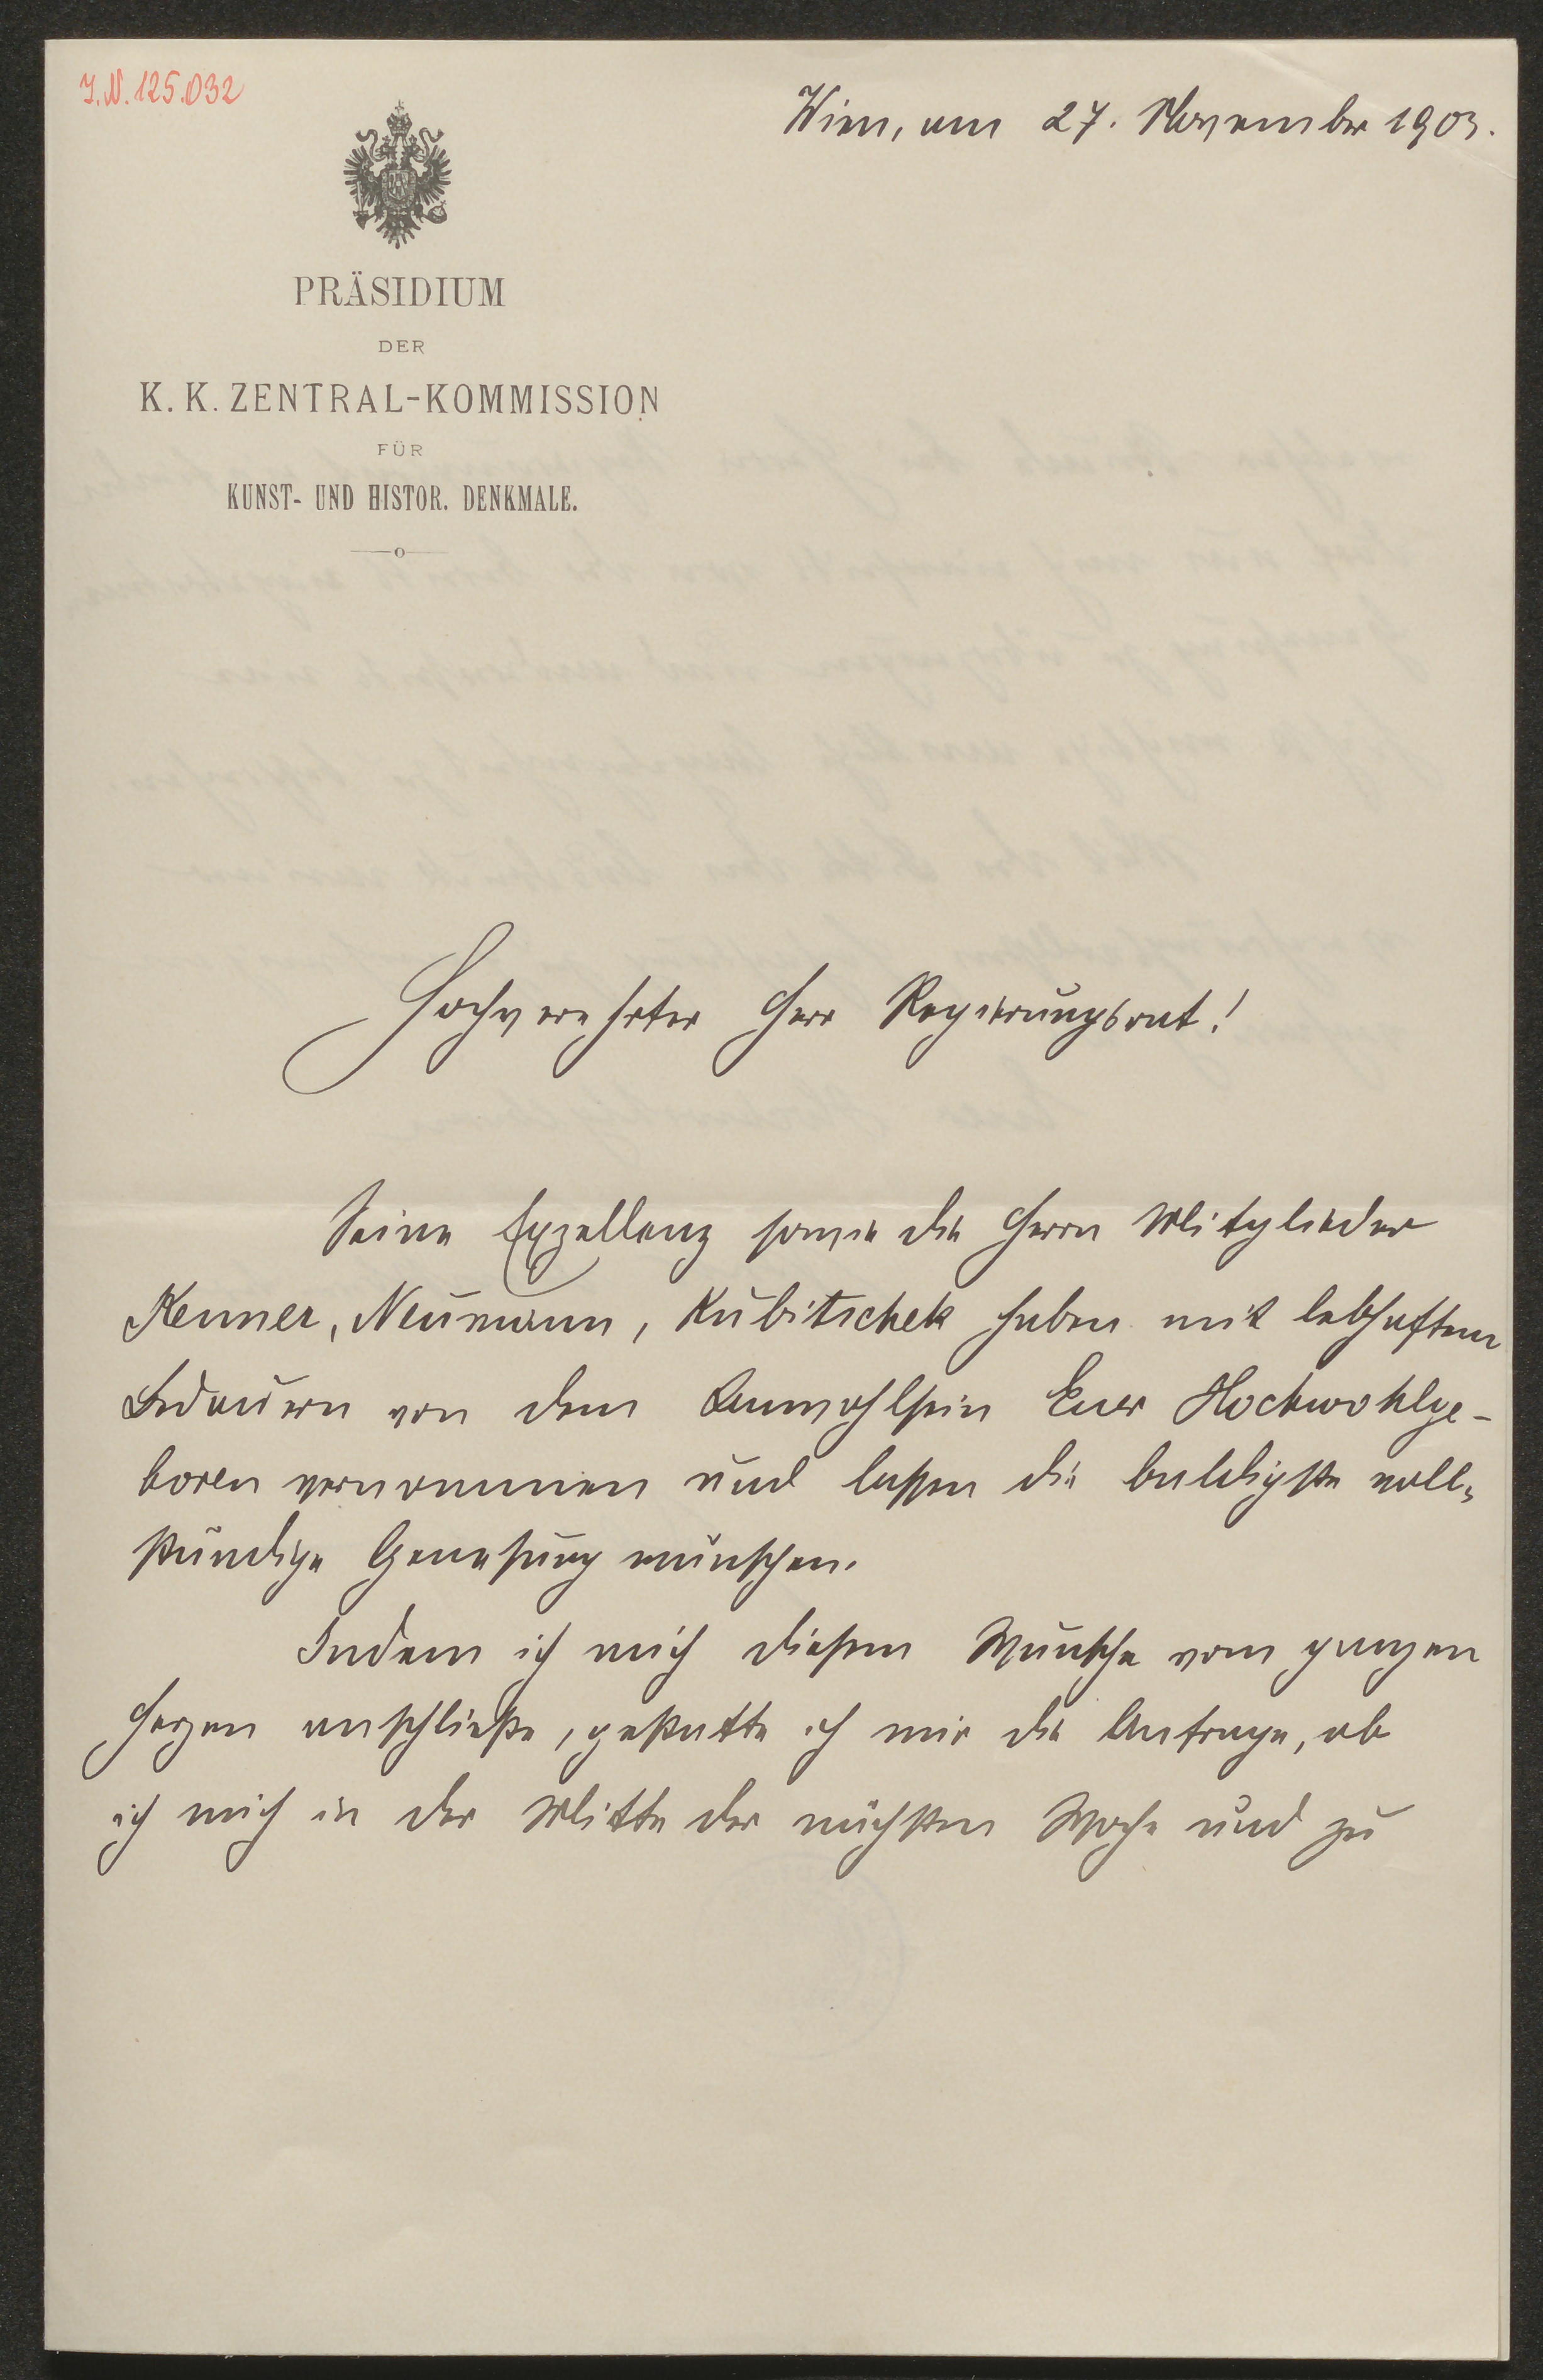 J.N. 125.032
Wien, am 27. November 1903.
PRÄSIDIUM
DER
K. K. ZENTRAL-KOMMISSION
FÜR
KUNST- UND HISTOR. DENKMALE.
Hochverehrter Herr Regierungsrat!
Seine Exzellenz sowie die Herrn Mitglieder
Kenner, Neumann, Kubitschek haben mit lebhaftem
Bedauern von dem Unwohlsein Euer Hochwohlge-
boren vernommen und lassen die baldigste voll-
ständige Genesung wünschen.
Indem ich mich diesem Wunsche vom ganzen
Herzen anschließe, gestatte ich mir die Anfrage, ob
ich mich in der Mitte der nächsten Woche und zu